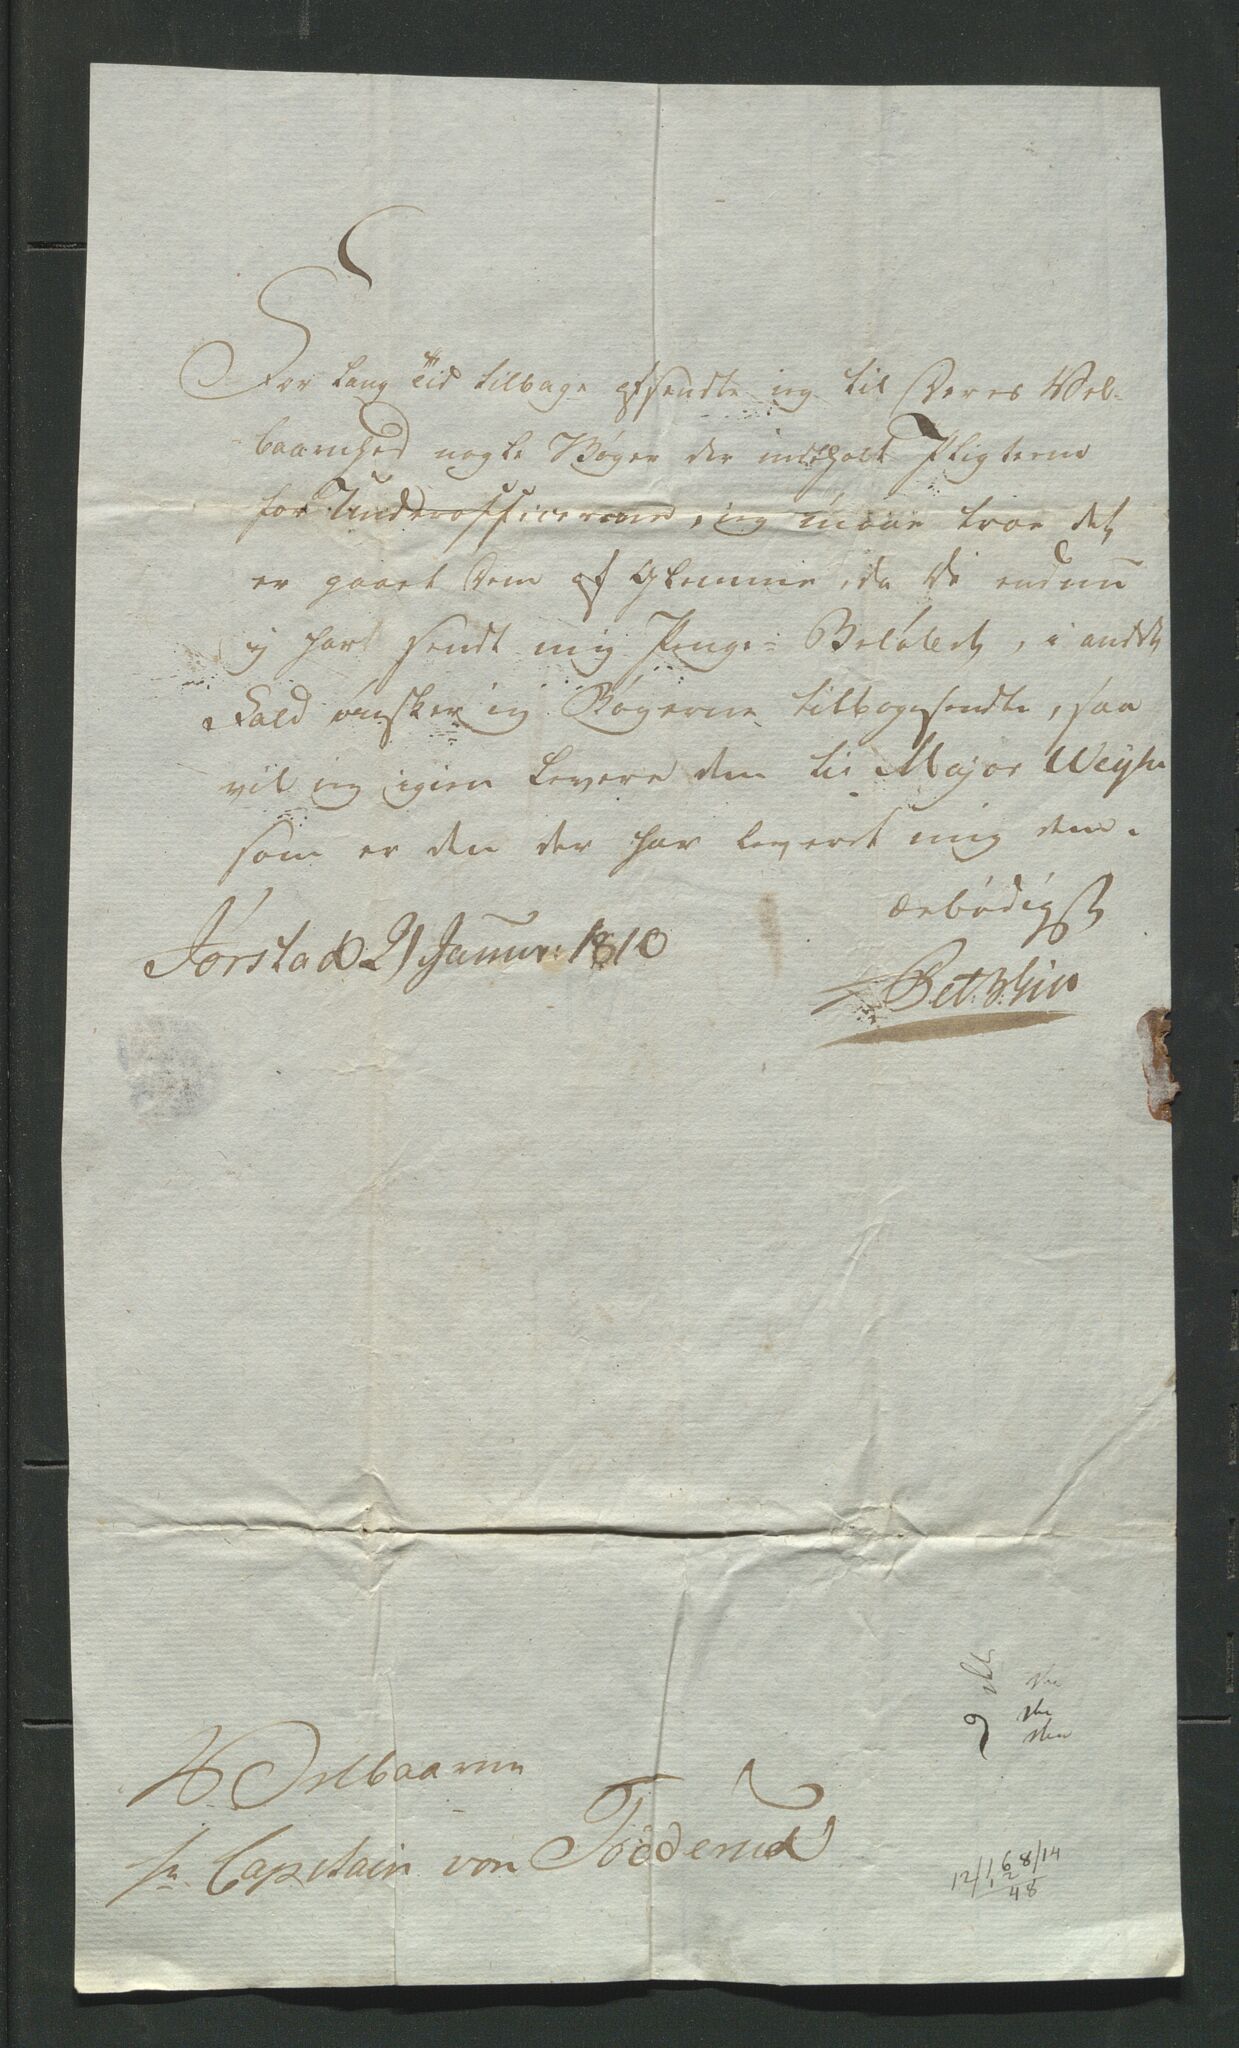 For lang Tid tilbage afsendte jeg til Deres Vel-
baarnhed nogle Bøger der indeholt Pligterne
for Underofficererne, jeg maae troe det
er gaaet Dem af Glemme, da De endnu
ej har sendt mig Penge-Beløbet, i andet
Fald ønsker jeg Bøgerne tilbagesendte, saa
vil jeg igien levere dem til Major Weyhe
som er den der har leveret mig dem.
ærbødigst
Jørstad 21 Januar: 1810
Velbaarne
Hr. Capitain von
12/168/14
48